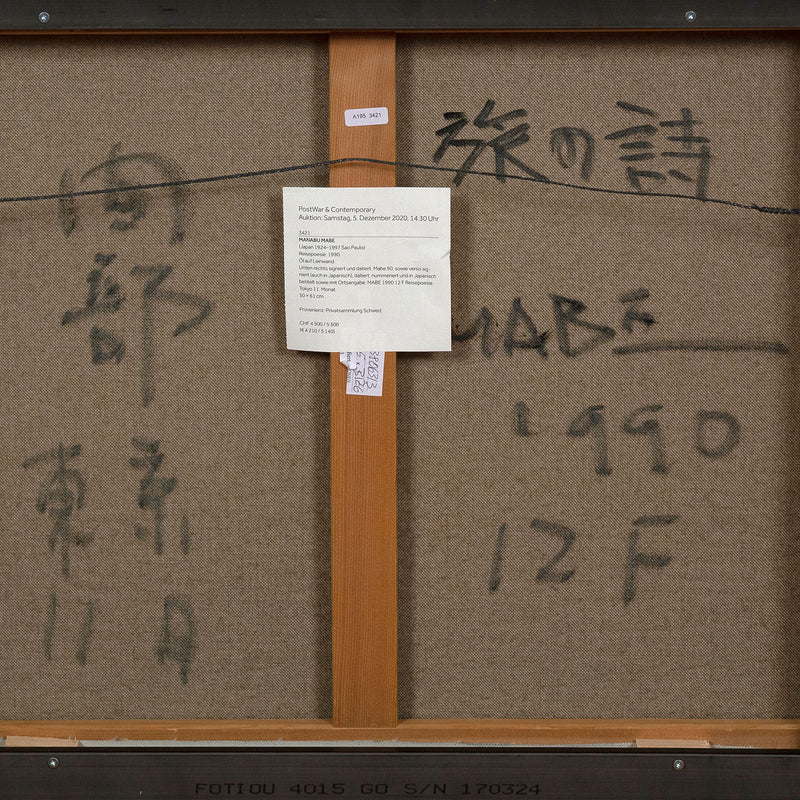 A195 3421
旅の詩
PostWar & Contemporary
Auktion: Samstag, 5. Dezember 2020, 14.30 Uhr
3421
MANABU MABE
(Japan 1924–1997 Sao Paulo)
Reisepoesie. 1990.
Öl auf Leinwand.
Unten rechts signiert und datiert: Mabe 90, sowie verso sig-
niert (auch in Japanisch), datiert, nummeriert und in Japanisch
betitelt sowie mit Ortsangabe: MABE 1990 12 F Reisepoesie
Tokyo 11. Monat.
50 × 61 cm.
Provenienz: Privatsammlung Schweiz.
CHF 4 500 / 5 500
(€ 4 210 / 5 140)
間部
MABE
1990
12 F
東京
11月
FOTIOU 4015 GO S/N 170324